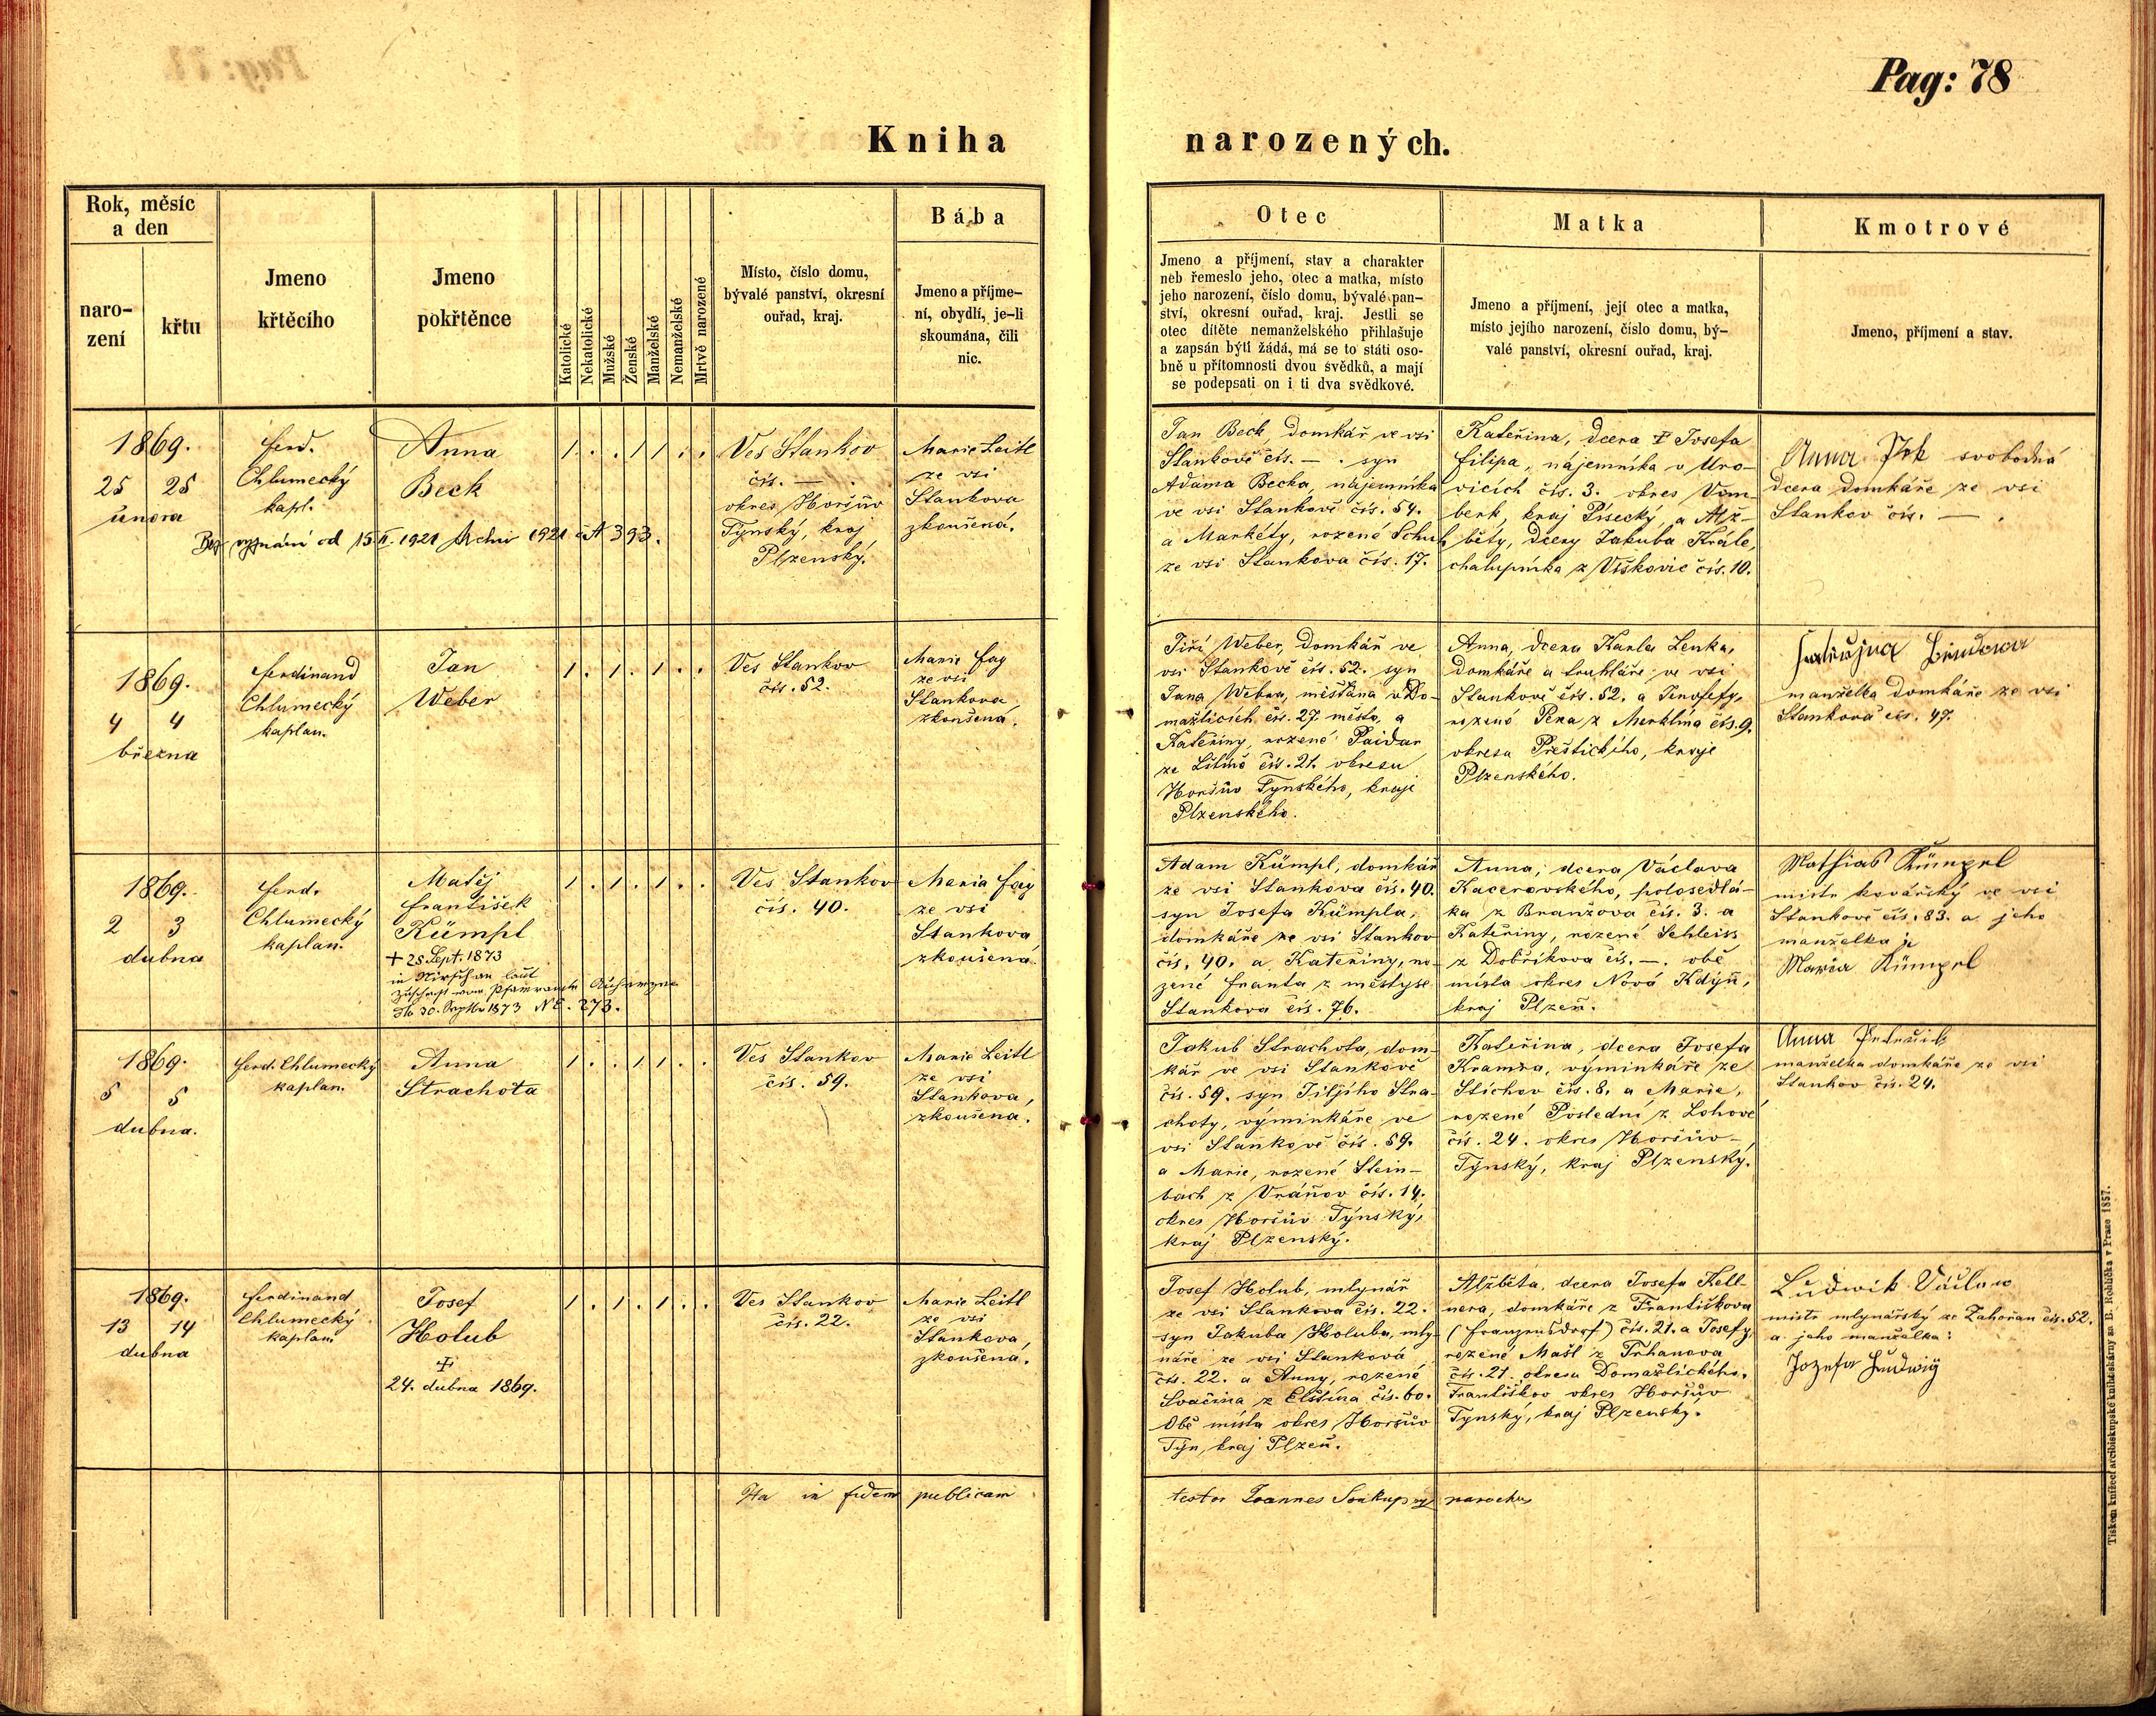 Pag: 78
Kniha narozených.
Rok, měsíc
a den
naro-
zení
křtu
Jmeno
křtěcího
Jmeno
pokřtěnce
Katolické
Nekatolické
Mužské
Ženské
Manželské
Nemanželské
Mrtvě narozené
Místo, číslo domu,
bývalé panství, okresní
ouřad, kraj.
Bába
Jmeno a příjme-
ní, obydlí, je-li
skoumána, čili
nic.
Otec
Jmeno a příjmení, stav a charakter
neb řemeslo jeho, otec a matka, místo
jeho narození, číslo domu, bývalé pan-
ství, okresní ouřad, kraj. Jestli se
otec dítěte nemanželského přihlašuje
a zapsán býti žádá, má se to státi oso-
bně u přítomnosti dvou svědků, a mají
se podepsati on i ti dva svědkové.
Matka
Jmeno a příjmení, její otec a matka,
místo jejího narození, číslo domu, bý-
valé panství, okresní ouřad, kraj.
Kmotrové
Jmeno, příjmení a stav.
1869.
25 25
února
Ferd.
Chlumecký
kapl.
Anna
Beck
Bez vyznání od 15.II.1921 Archiv 1921 čA 393.
1 . . 1 1 . .
Ves Stankov
čís. — .
okres Horšův
Týnský, kraj
Plzenský.
Marie Leitl
ze vsi
Stankova
zkoušená.
Jan Beck, domkář ve vsi
Stankově čís. — . syn
Adama Becka, nájemníka
ve vsi Stankově čís. 54.
a Markéty, rozené Schuh
ze vsi Stankova čís. 17.
Kateřina, dcera † Josefa
Filipa, nájemníka v Uro-
vicích čís. 3. okres Vim-
berk, kraj Písecký, a Alž-
běty, dcery Jakuba Krále,
chalupníka z Viškovic čís. 10.
Anna svobodná
dcera domkáře ze vsi
Stankov čís. — .
1869.
4 4
března
Ferdinand
Chlumecký
kaplan.
Jan
Weber
1 . 1 . 1 . .
Ves Stankov
čís. 52.
Marie Fag
ze vsi
Stankova
zkoušená.
Jiří Weber, domkář ve
vsi Stankově čís. 52. syn
Jana Webra, měšťana v Do-
mažlicích čís. 27. město, a
Kateřiny, rozené Paidar
ze čís. 21. okresu
Horšův Tynského, kraje
Plzenského.
Anna, dcera Karla Lenka,
domkáře a truhláře ve vsi
Stankově čís. 52. a
rozené Pexa z Merklína čís. 9.
okresu Přeštického, kraje
Plzenského.
manželka domkáře ze vsi
Stankova čís. 47.
1869.
2 3
dubna
Ferd.
Chlumecký
kaplan.
Matěj
František
Kümpl
+ 28. Sept. 1873
in Nirschan laut
Zuschrift vom Pfarramte
dto 30. Septbr 1873 NE. 273.
1 . 1 . 1 . .
Ves Stankov
čís. 40.
Maria Fag
ze vsi
Stankova
zkoušená
Adam Kümpl, domkář
ze vsi Stankova čís. 40.
syn Josefa Kümpla,
domkáře ze vsi Stankov
čís. 40. a Kateřiny, ro-
zené Franta z městyse
Stankova čís. 76.
Anna, dcera Václava
Kacerovského, polosedlá-
ka z Branžova čís. 3. a
Kateřiny, rozené Schleiss
z Dobříkova čís. —. obě
místa okres Nová Kdýň,
kraj Plzeň.
Mathias Kümpel
mistr kovářský ve vsi
Stankově čís. 83. a jeho
manželka
Maria Kümpel
1869.
5 5
dubna.
Ferd. Chlumecký
kaplan.
Anna
Strachota
1 . . 1 1 . .
Ves Stankov
čís. 59.
Marie Leitl
ze vsi
Stankova,
zkoušená.
Jakub Strachota, dom-
kář ve vsi Stankově
čís. 59. syn Jiljího Stra-
choty, výminkáře ve
vsi Stankově čís. 59.
a Marie, rozené Stein-
bach z Vráňov čís. 14.
okres Horšův Týnský,
kraj Plzenský.
Kateřina, dcera Josefa
Kramra, výminkáře ze
Stichov čís. 8. a Marie,
rozené Poslední z Lohové
čís. 24. okres Horšův-
Týnský, kraj Plzenský.
Anna
manželka domkáře ze vsi
Stankov čís. 24.
1869.
13 14
dubna
Ferdinand
Chlumecký
kaplan
Josef
Holub
‡
24. dubna 1869.
1 . 1 . 1 . .
Ves Stankov
čís. 22.
Marie Leitl
ze vsi
Stankova,
zkoušená.
Josef Holub, mlynář
ze vsi Stankova čís. 22.
syn Jakuba Holuba, mly-
náře ze vsi Stanková
čís. 22. a Anny, rozené
Svačina z Elstína čís. 60.
Obě místa okres Horšův
Týn, kraj Plzeň.
Alžběta, dcera Josefa Kell-
nera, domkáře z Františkova
(Franzensdorf) čís. 21. a Josefy,
rozené Mašl z Trhanova
čís. 21. okresu Domažlického.
Františkov okres Horšův
Tynský, kraj Plzenský.
Ludwik Václaw
mistr mlynářský ze Zahořan čís. 52.
a jeho manželka:
Jozefa Ludwig
Ita in fidem publicam testor Joannes Soukup parochus
Tiskem knížecí arcibiskupské knihtiskárny za B. Rohlíčka v Praze 1857.